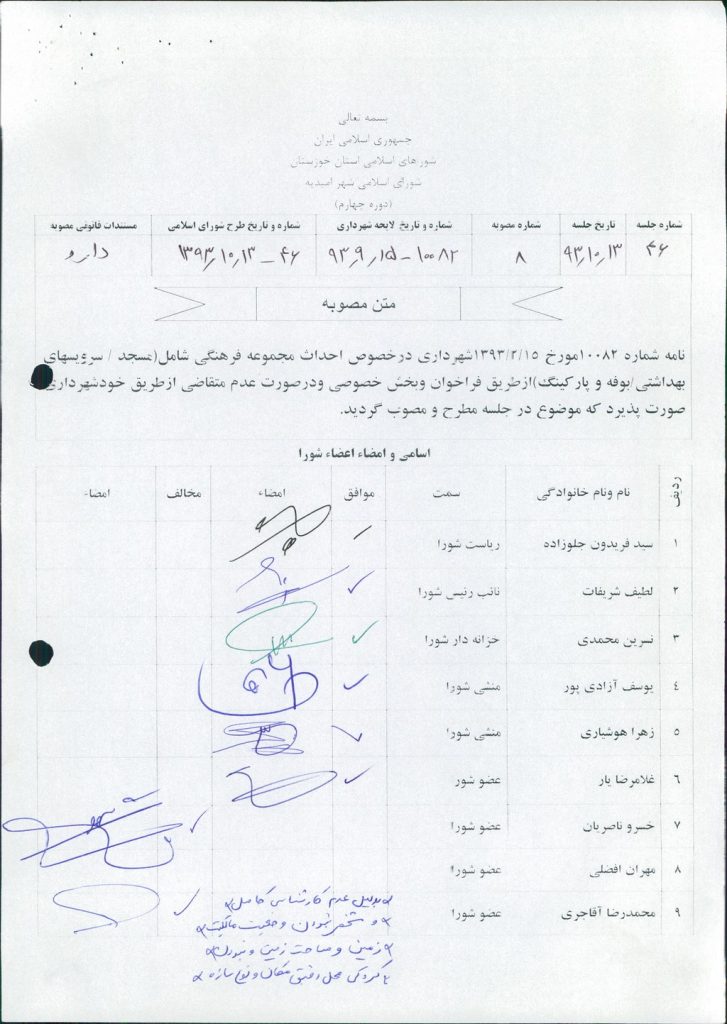 بسمه تعالی
جمهوری اسلامی ایران
شوراهای اسلامی استان خوزستان
شورای اسلامی شهر امیدیه
(دوره چهارم)
شماره جلسه تاریخ جلسه شماره مصوبه شماره و تاریخ لایحه شهرداری شماره و تاریخ طرح شورای اسلامی مستندات قانونی مصوبه
۴۶ ۹۳/۱۰/۱۳ ۸ ۱۰۰۸۲ - ۹۳/۹/۱۵ ۴۶ - ۱۳۹۳/۱۰/۱۳ دارد
متن مصوبه
نامه شماره ۱۰۰۸۲مورخ ۱۳۹۳/۲/۱۵شهرداری درخصوص احداث مجموعه فرهنگی شامل(مسجد / سرویسهای
بهداشتی/بوفه و پارکینگ)ازطریق فراخوان وبخش خصوصی ودرصورت عدم متقاضی ازطریق خودشهرداری
صورت پذیرد که موضوع در جلسه مطرح و مصوب گردید.
اسامی و امضاء اعضاء شورا
ردیف نام ونام خانوادگی سمت موافق امضاء مخالف امضاء
۱ سید فریدون جلوزاده ریاست شورا
۲ لطیف شریفات نائب رئیس شورا
۳ نسرین محمدی خزانه دار شورا
۴ یوسف آزادی پور منشی شورا
۵ زهرا هوشیاری منشی شورا
۶ غلامرضا یار عضو شور
۷ خسرو ناصریان عضو شورا
۸ مهران افضلی عضو شورا
۹ محمدرضا آقاجری عضو شورا
بدلیل عدم کارشناسی کامل
و مشخص نبودن وضعیت مالکیت
زمین و مساحت زمین و نبودن
کروکی محل دقیق مکان و نوع سازه